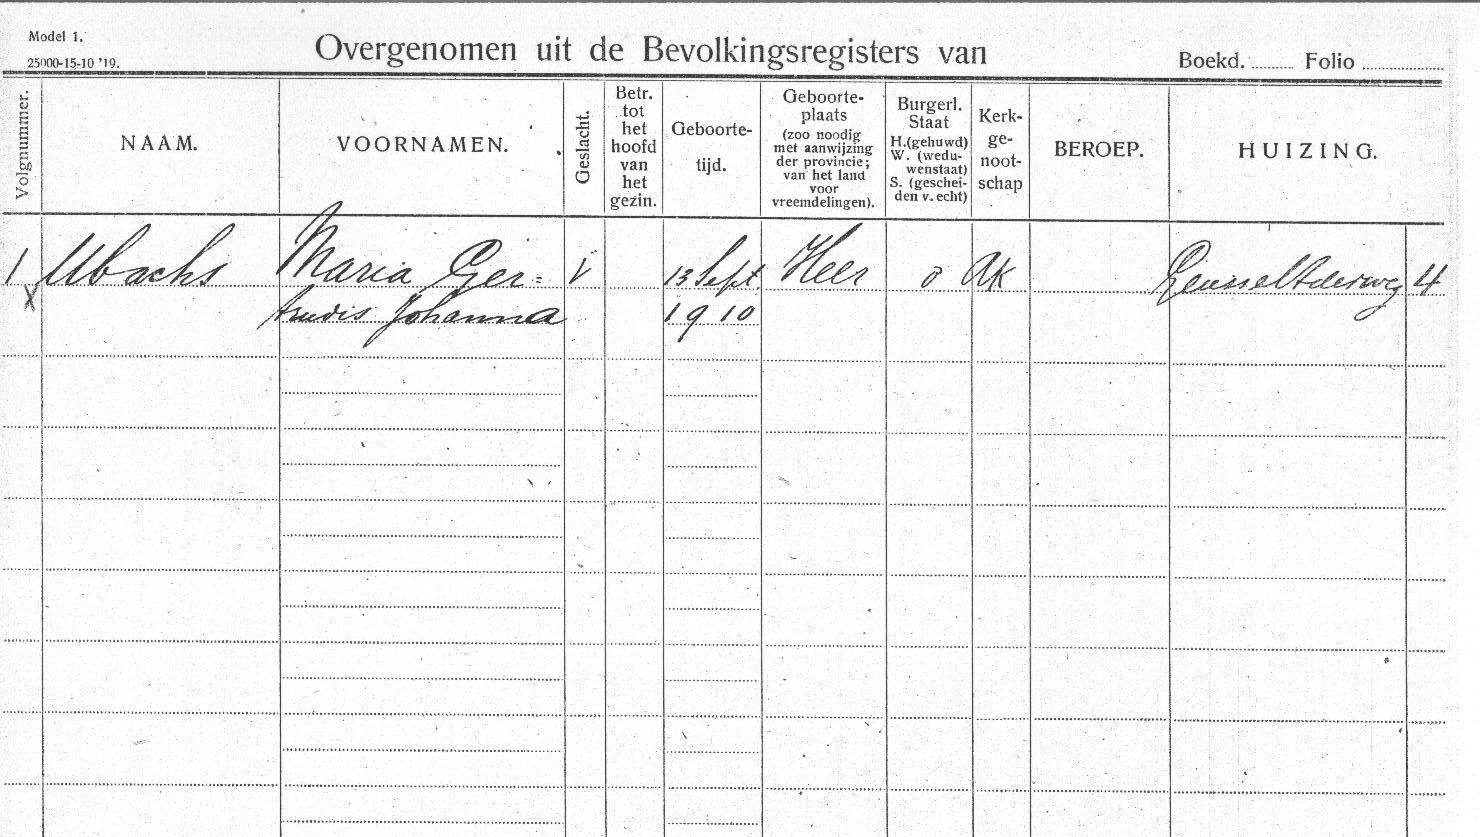 Model 1.
25000-15-10 '19.
Overgenomen uit de Bevolkingsregisters van
Boekd. ......... Folio ..................
Volgnummer.
NAAM.
VOORNAMEN.
Geslacht.
Betr.
tot
het
hoofd
van
het
gezin.
Geboorte-
tijd.
Geboorte-
plaats
(zoo noodig
met aanwijzing
der provincie;
van het land
voor
vreemdelingen).
Burgerl.
Staat
H.(gehuwd)
W. (wedu-
wenstaat)
S. (geschei-
den v. echt)
Kerk-
ge-
noot-
schap
BEROEP.
HUIZING.
1 Ubachs Maria Ger= V 13 Sept. Heer o RK Geusselterweg 4
X trudis Johanna 1910